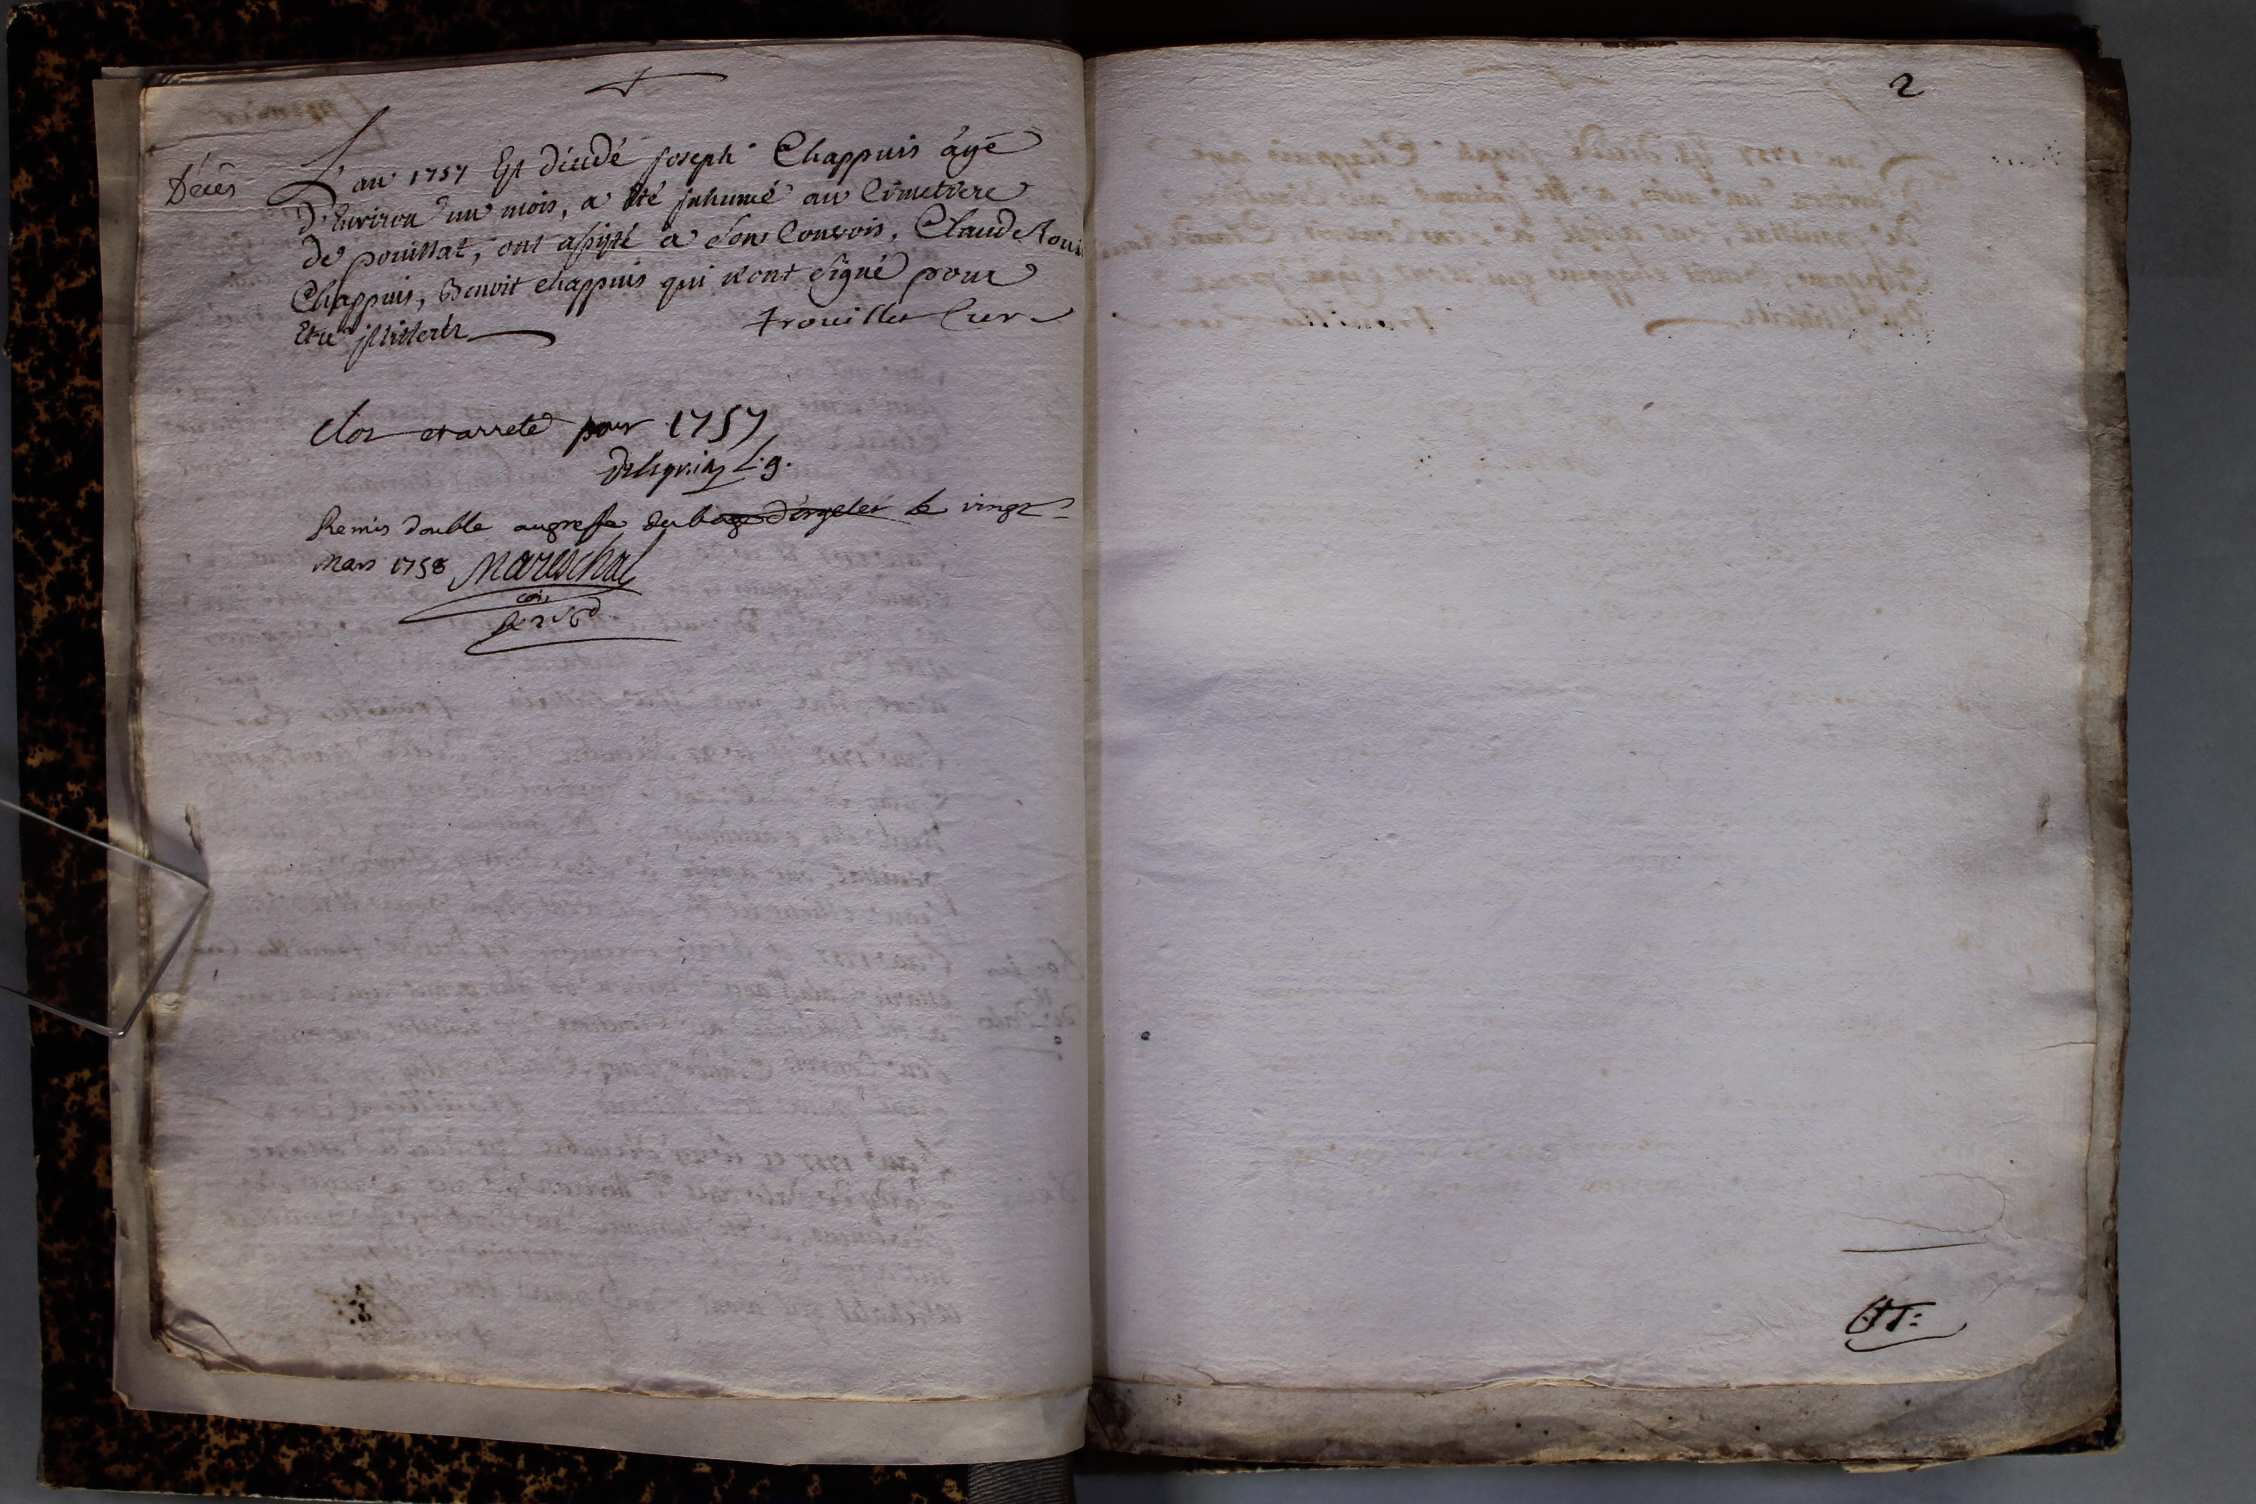 Décès
L'an 1757 Est décédé joseph Chappuis âgé
D'Environ un mois, a été jnhumé au Cimetiere
de pouillat, ont assisté a son Convois, Claude Loui
Chappuis, Benoit chappuis qui n'ont signé pour
Etre jllitérés trouillet Cur
Clos et arreté pour 1757
L. g.
Remis double au greffe du bage d'orgelet le vingt
mars 1758 Mareschal
2